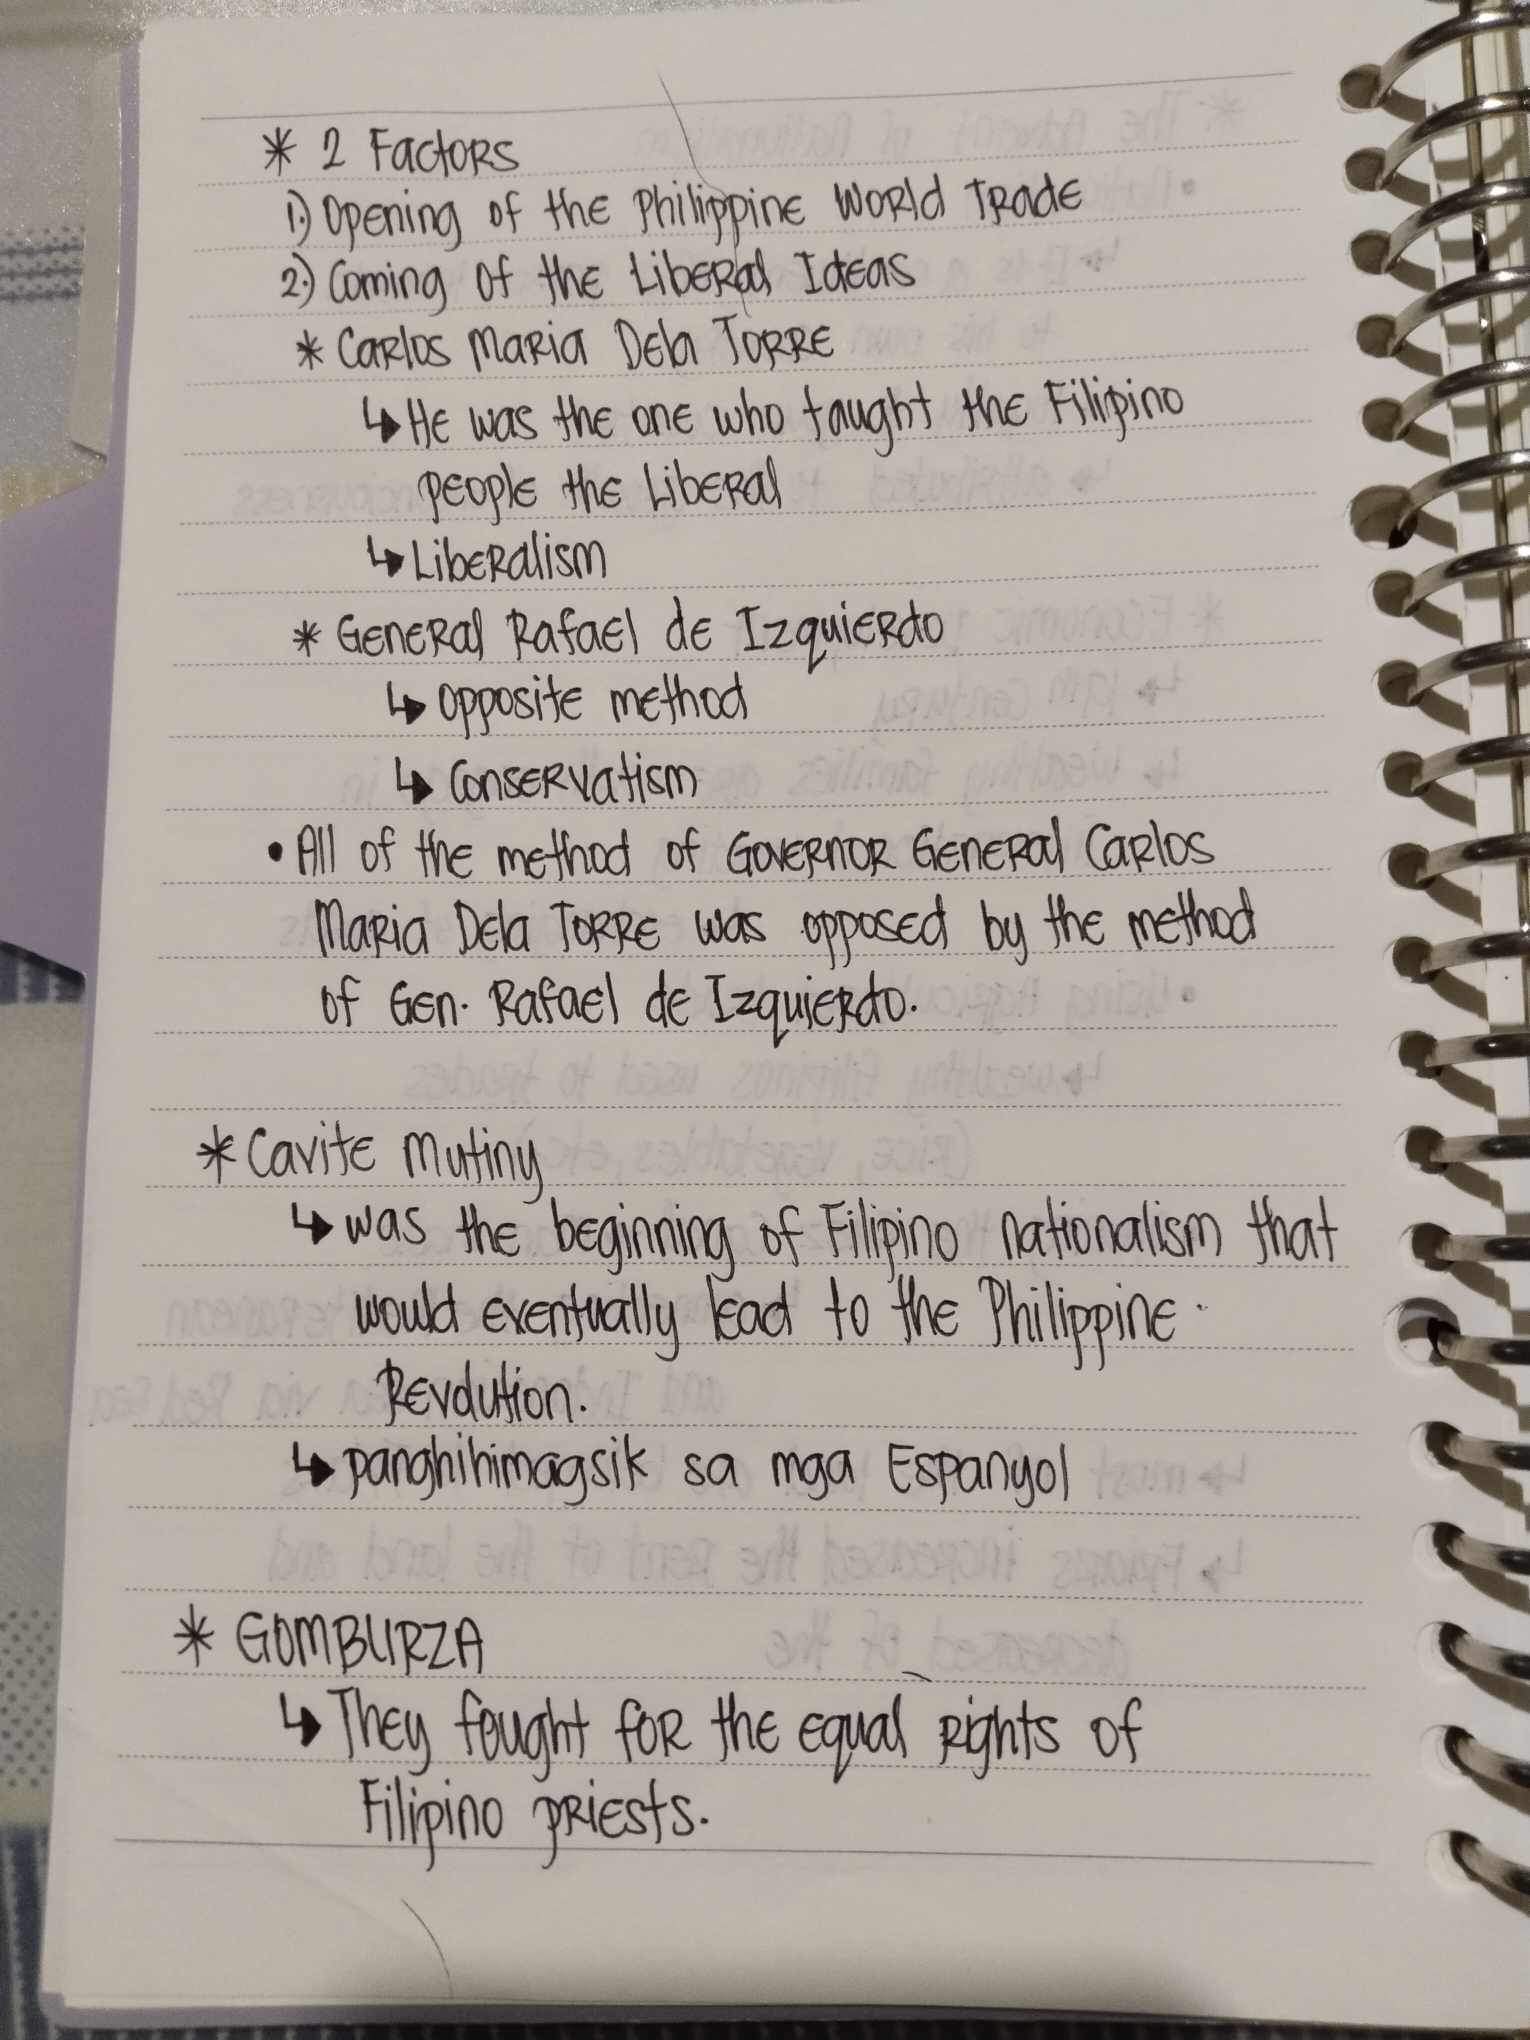 * 2 Factors
1.) Opening of the Philippine World Trade
2.) Coming of the Liberal Ideas
* Carlos Maria Dela Torre
↳ He was the one who taught the Filipino
people the Liberal
↳ Liberalism
* General Rafael de Izquierdo
↳ opposite method
↳ conservatism
• All of the method of Governor General Carlos
Maria Dela Torre was opposed by the method
of Gen. Rafael de Izquierdo.
* Cavite Mutiny
↳ was the beginning of Filipino nationalism that
would eventually lead to the Philippine
Revolution.
↳ panghihimagsik sa mga Espanyol
* GOMBURZA
↳ They fought for the equal rights of
Filipino priests.